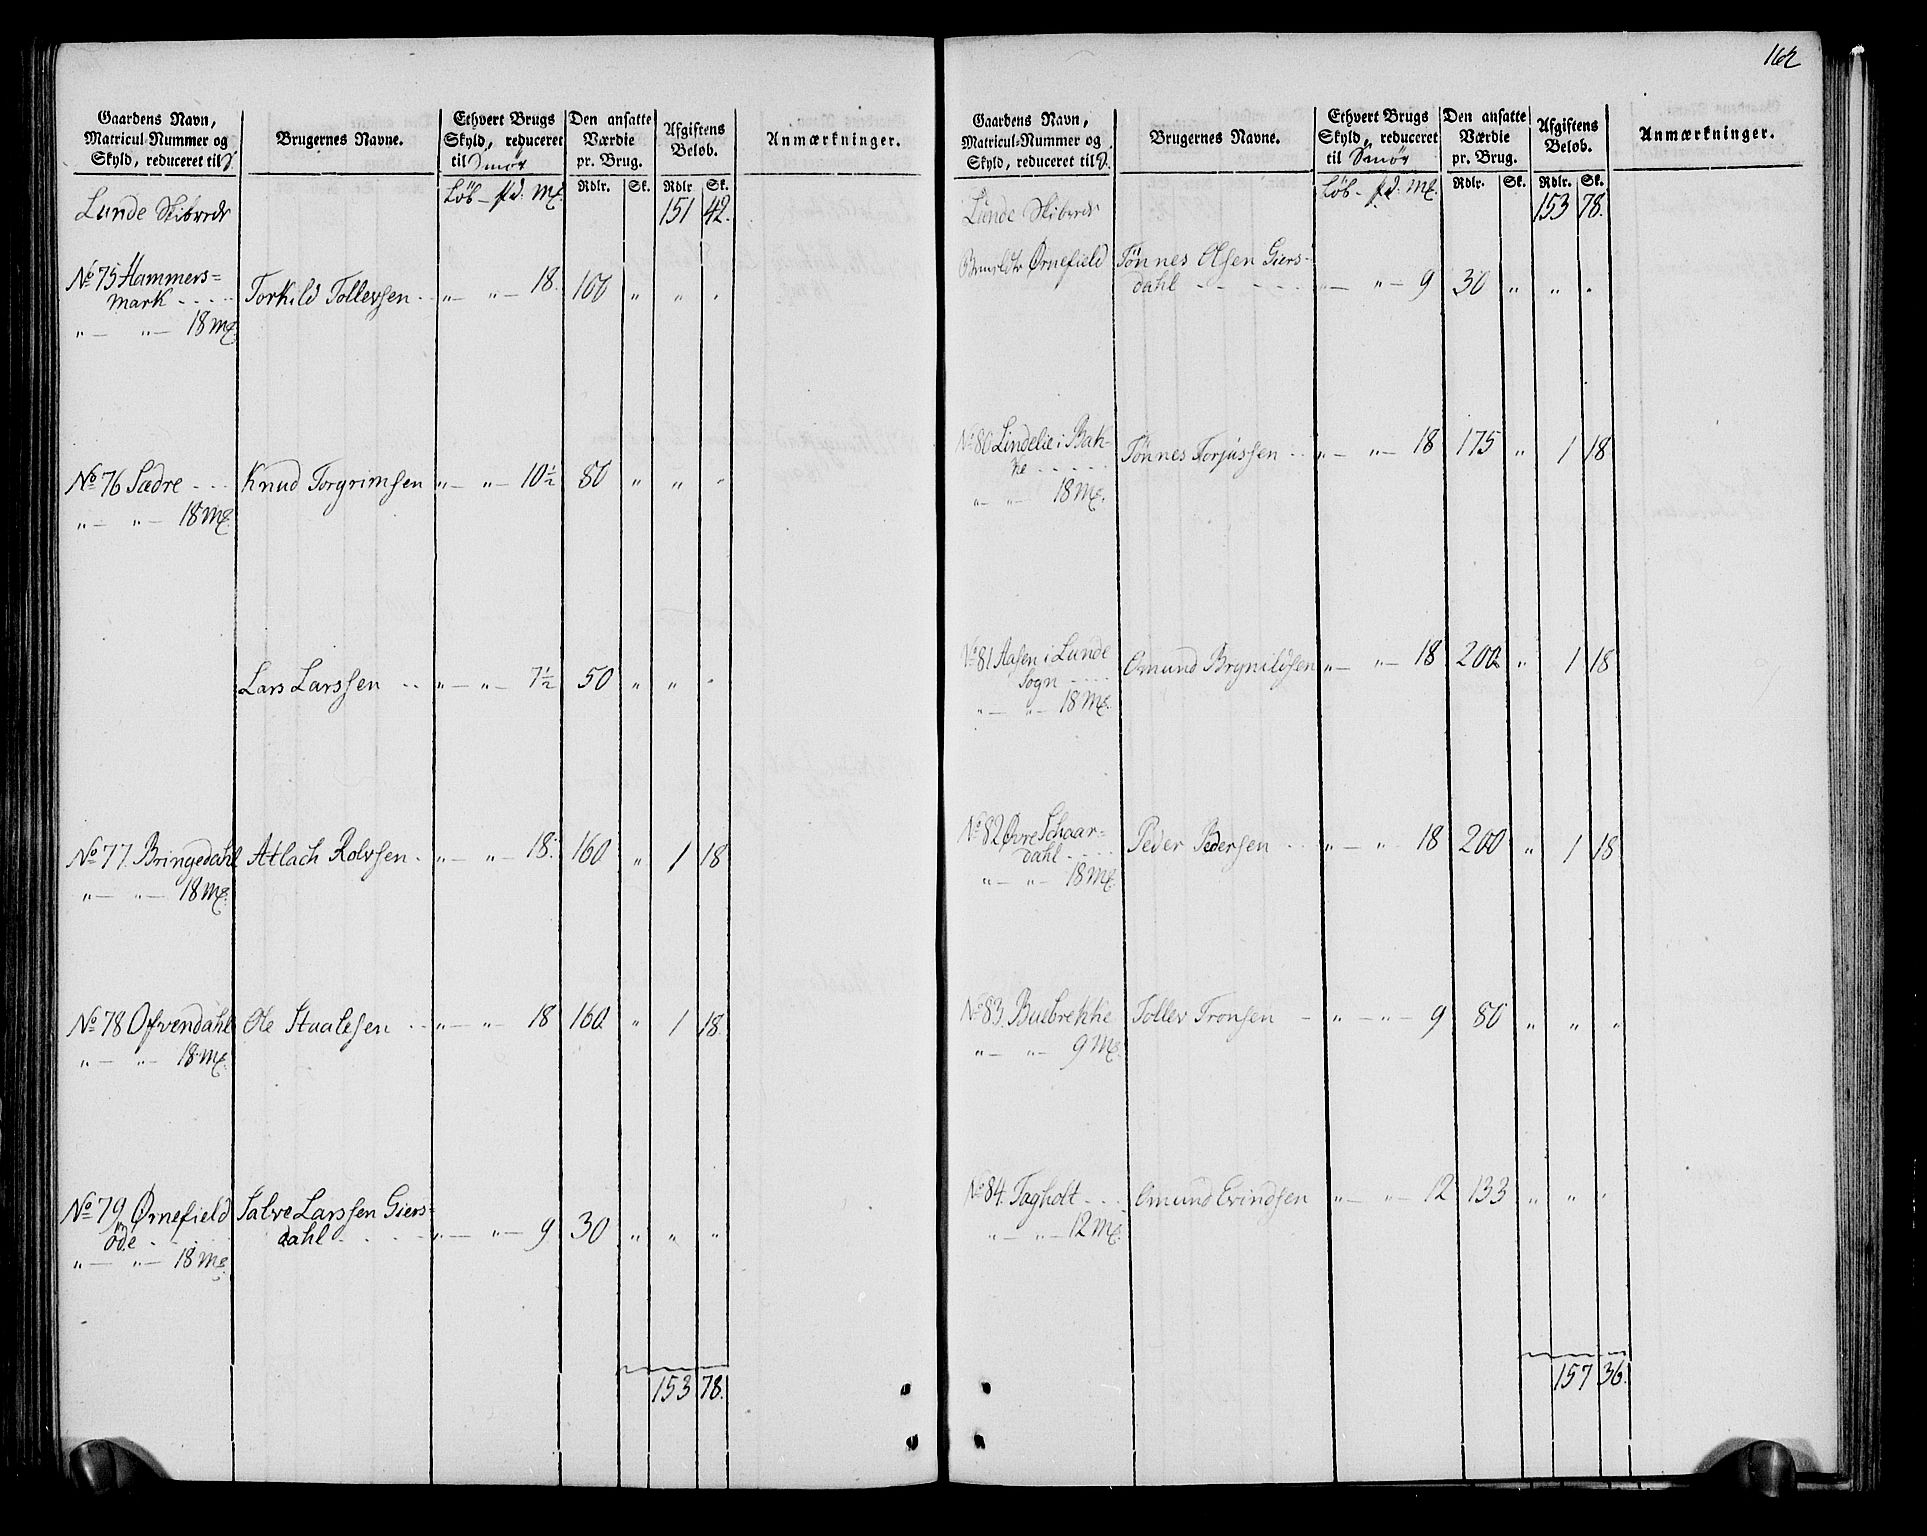 Gaardens Navn,
Matricul-Nummer og
Skyld, reduceret til S.
Brugernes Navne.
Ethvert Brugs
Skyld, reduceret
til Smør
Den ansatte
Værdie
pr. Brug.
Afgiftens
Beløb.
Anmærkninger.
Løb – pd. – Mk. Rdlr. Sk. Rdlr Sk.
Lunde Skibrede 151 42.
No 75 Hammers=
mark - - - - Torkild Tollevsen - - „ – „ – 18. 100 „ „ .
„ – „ – 18 Mk.
No 76 Sædre - - - Knud Torgrimsen „ – „ – 10½ 80 „ „ „
„ – „ – 18 Mk.
Lars Larssen - - „ – „ – 7½ 50 „ „ .
No 77. Bringedahl Atlach Rolvsen - „ – „ – 18. 160 „ 1 18
„ – „ – 18 Mk.
No 78 Ofvendahl Ole Staalesen - - „ – „ – 18 160. „ 1 18.
„ – „ – 18 Mk.
No 79 Ørnefield Salve Larssen Giers=
øde - - - dahl - - - - „ – „ – 9 30 „ „ „
„ – „ – 18 Mk.
153 78.
162
Gaardens Navn,
Matricul-Nummer og
Skyld, reduceret til S.
Brugernes Navne.
Ethvert Brugs
Skyld, reduceret
til Smør
Den ansatte
Værdie
pr. Brug.
Afgiftens
Beløb.
Anmærkninger.
Løb – pd. – Mk. Rdlr. Sk. Rdlr. Sk.
Lunde Skibrede 153 78.
Ørnefield Tønnes Olsen Giers-
dahl - - - - „ – „ – 9 30 „ „ .
No 80 Lindelie i Bak-
ke - - - - - Tønnes Torjussen - - „ – „ – 18 175 „ 1 18
„ – „ – 18 Mk.
No 81 Aasen i Lunde
Sogn - - - - Omund Brynildsen „ – „ – 18 200 „ 1 18
„ – „ – 18 Mk.
No 82 Øvre Schaar=
dahl - - - - Peder Pedersen - - „ – „ – 18 200 „ 1 18
„ – „ – 18 Mk.
No 83. Bulbrekke Tollev Tronsen – „ – „ – 9 80 „ „ „
„ – „ – 9 Mk.
No 84. Tagholt - - - Omund Evindsen „ – „ – 12 133 „ „ „
„ – „ – 12 Mk.
157 36.